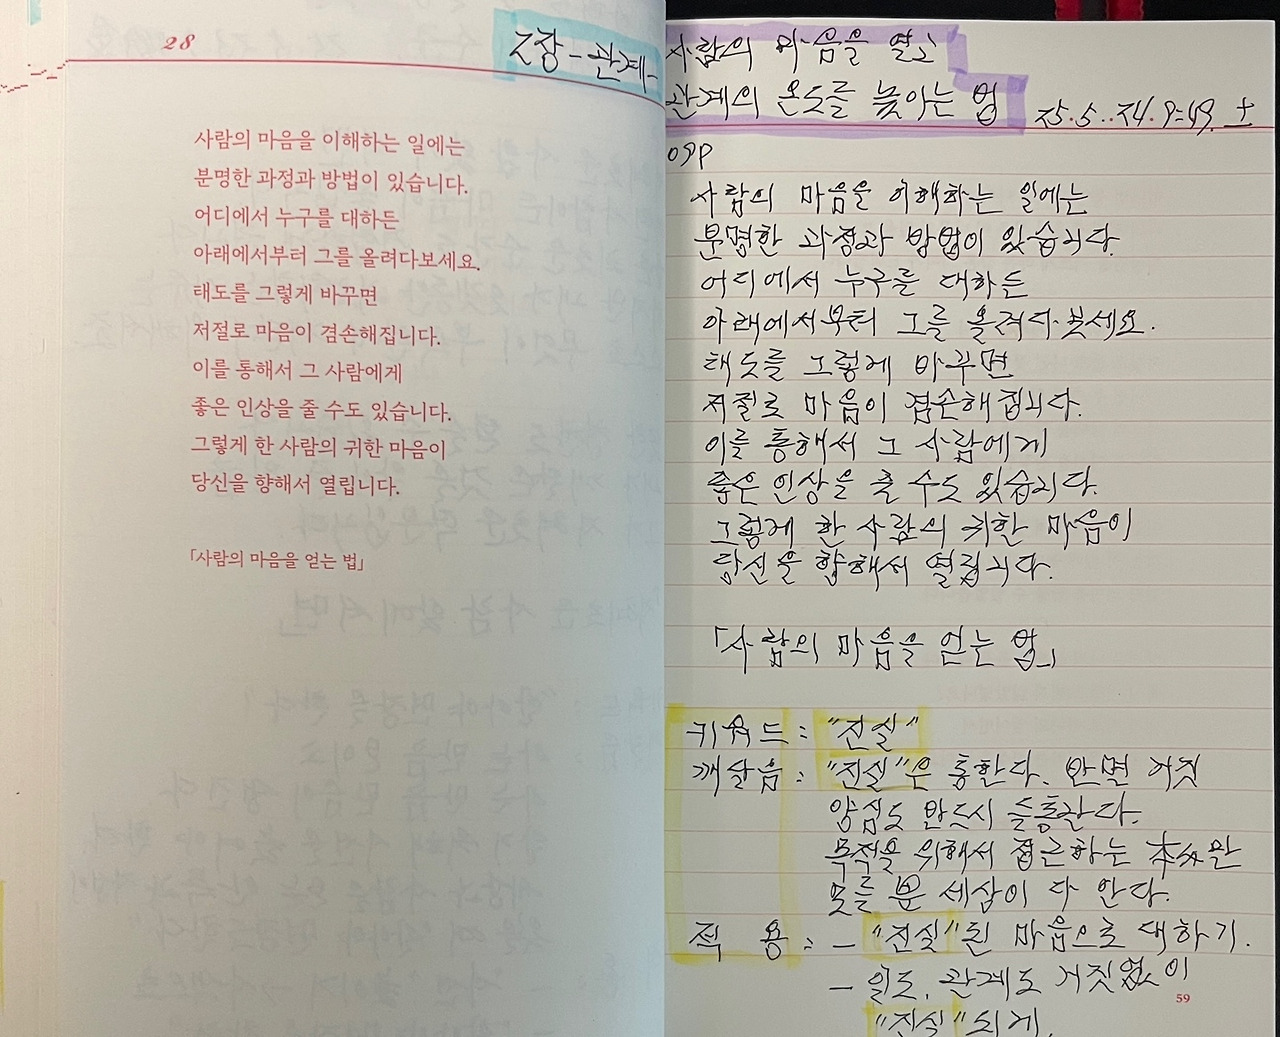 28
2장-관계-
사람의 마음을 이해하는 일에는
분명한 과정과 방법이 있습니다.
어디에서 누구를 대하든
아래에서부터 그를 올려다보세요.
태도를 그렇게 바꾸면
저절로 마음이 겸손해집니다.
이를 통해서 그 사람에게
좋은 인상을 줄 수도 있습니다.
그렇게 한 사람의 귀한 마음이
당신을 향해서 열립니다.
「사람의 마음을 얻는 법」
사람의 마음을 열고
관계의 온도를 높이는 법 25.5..24.9:49. 土
09P
사람의 마음을 이해하는 일에는
분명한 과정과 방법이 있습니다.
어디에서 누구를 대하든
아래에서부터 그를 올려다 보세요.
태도를 그렇게 바꾸면
저절로 마음이 겸손해집니다.
이를 통해서 그 사람에게
좋은 인상을 줄 수도 있습니다.
그렇게 한 사람의 귀한 마음이
당신을 향해서 열립니다.
「사람의 마음을 얻는 법」
키워드 : "진실"
깨달음 : "진실"은 통한다. 반면 거짓
양심도 반드시 들통난다.
목적을 위해서 접근하는 本人만
모를 뿐 세상이 다 안다.
적 용 : - "진실"된 마음으로 대하기.
- 일도, 관계도 거짓없이
"진실"되게.
59